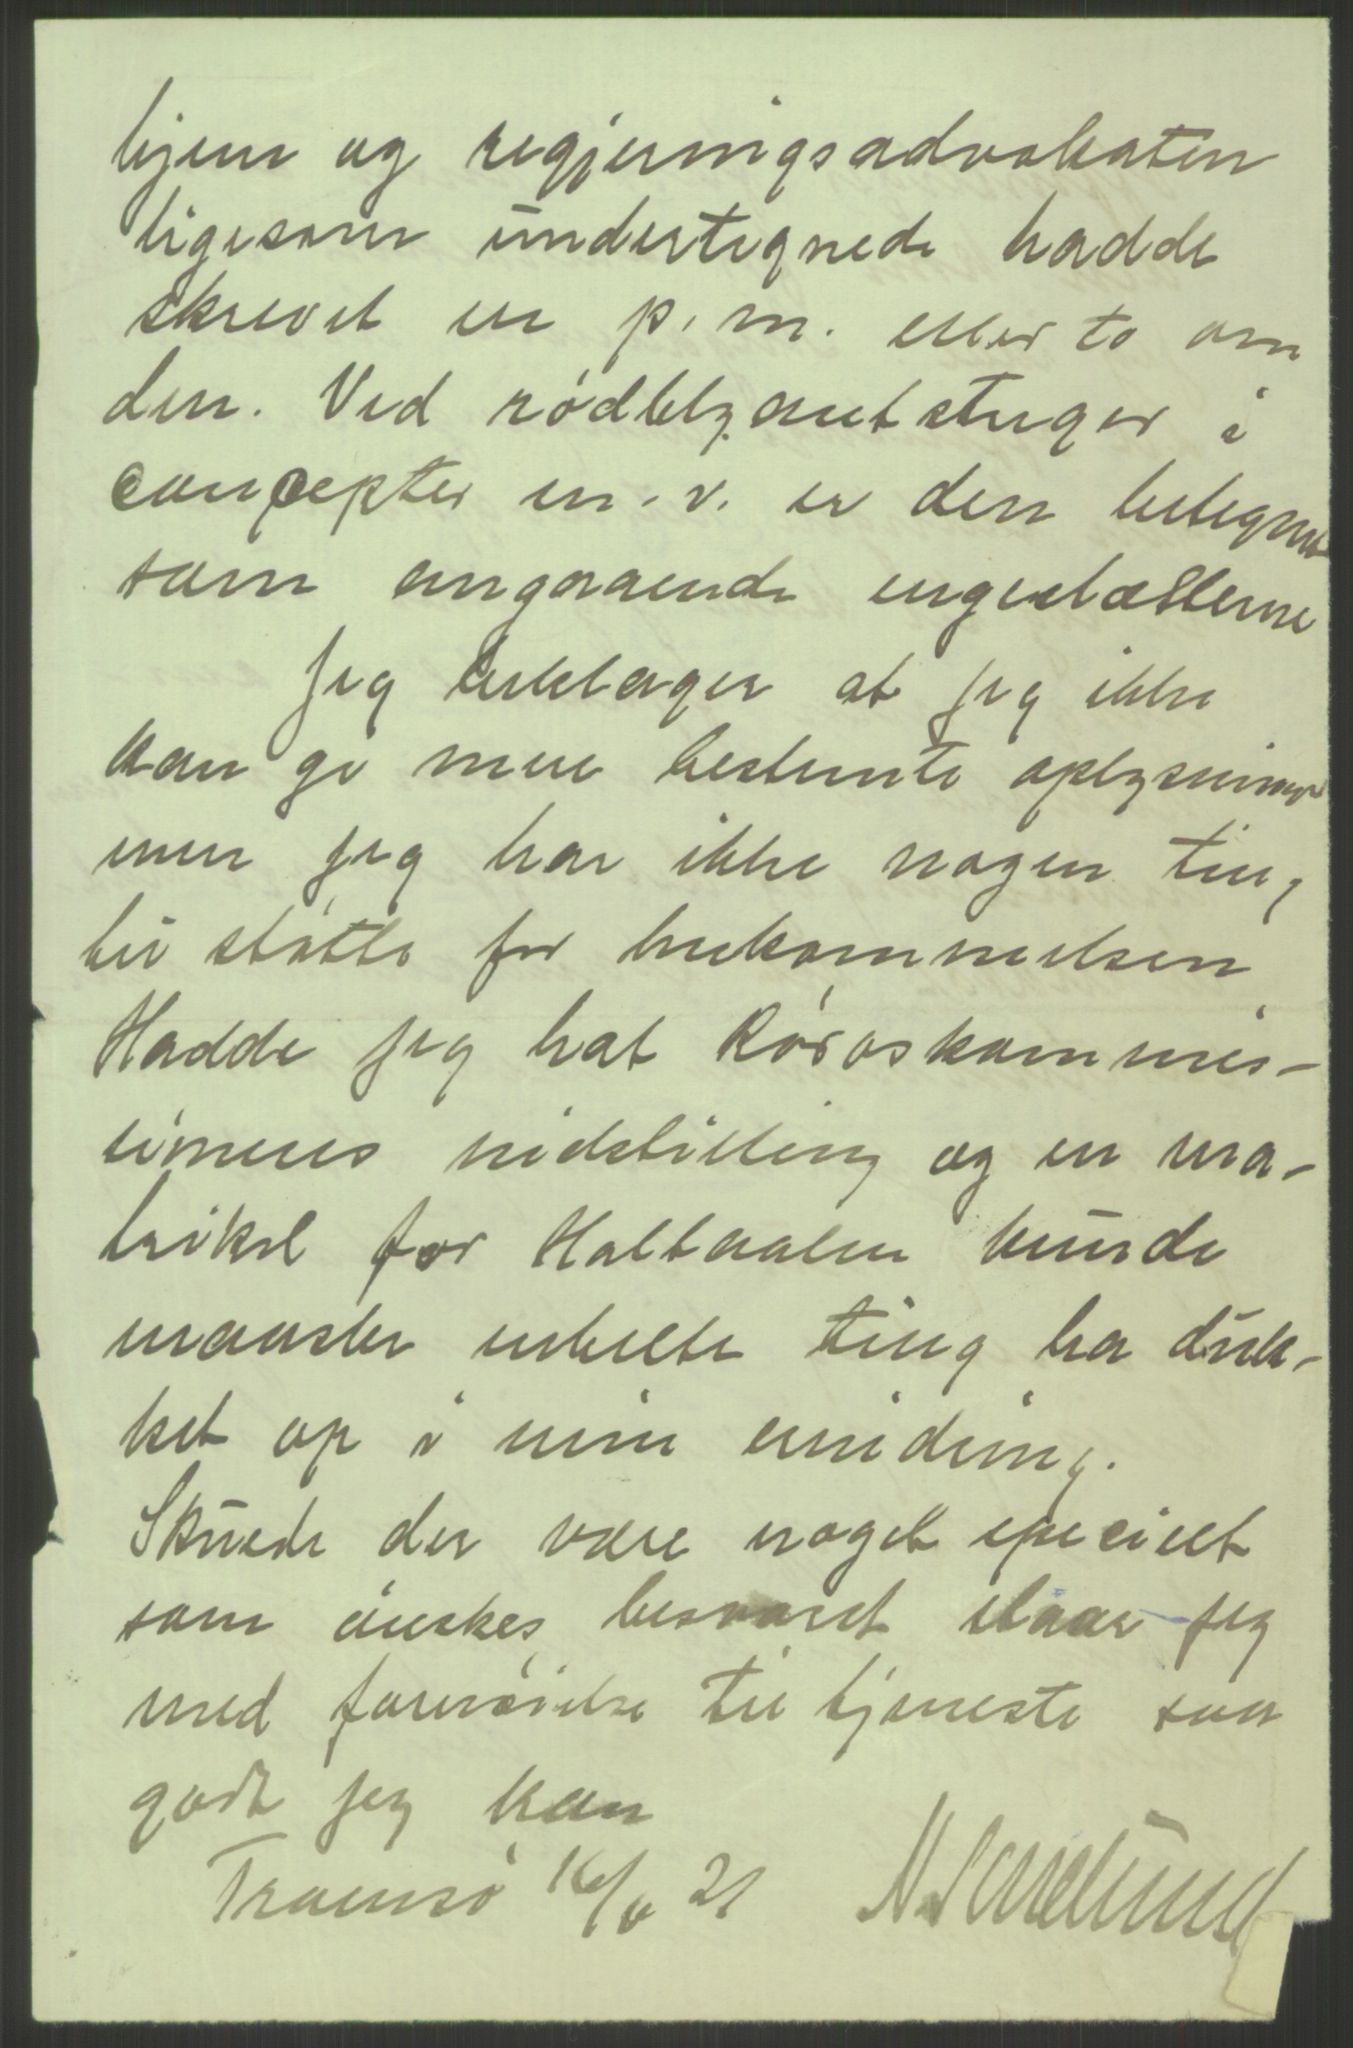 hjem og regjeringsadvokaten
ligesom undertegnede hadde
skrevet en p.m. eller to om
den. Ved rødblyantstreger i
concepter m.v. er den betegnet
som angaaende engeslætterne
Jeg beklager at jeg ikke
kan gi mere bestemte oplysninger
men jeg har ikke nogen ting
til støtte for hukommelsen
Hadde jeg hat Røroskommis-
sionens indstilling og en ma-
trikel for Holtaalen kunde
maaske enkelte ting ha duk-
ket op i min erindring.
Skulde der være noget specielt
som ønskes besvaret staar jeg
med fornøielse til tjeneste saa
godt jeg kan
Tromsø 16/ 21